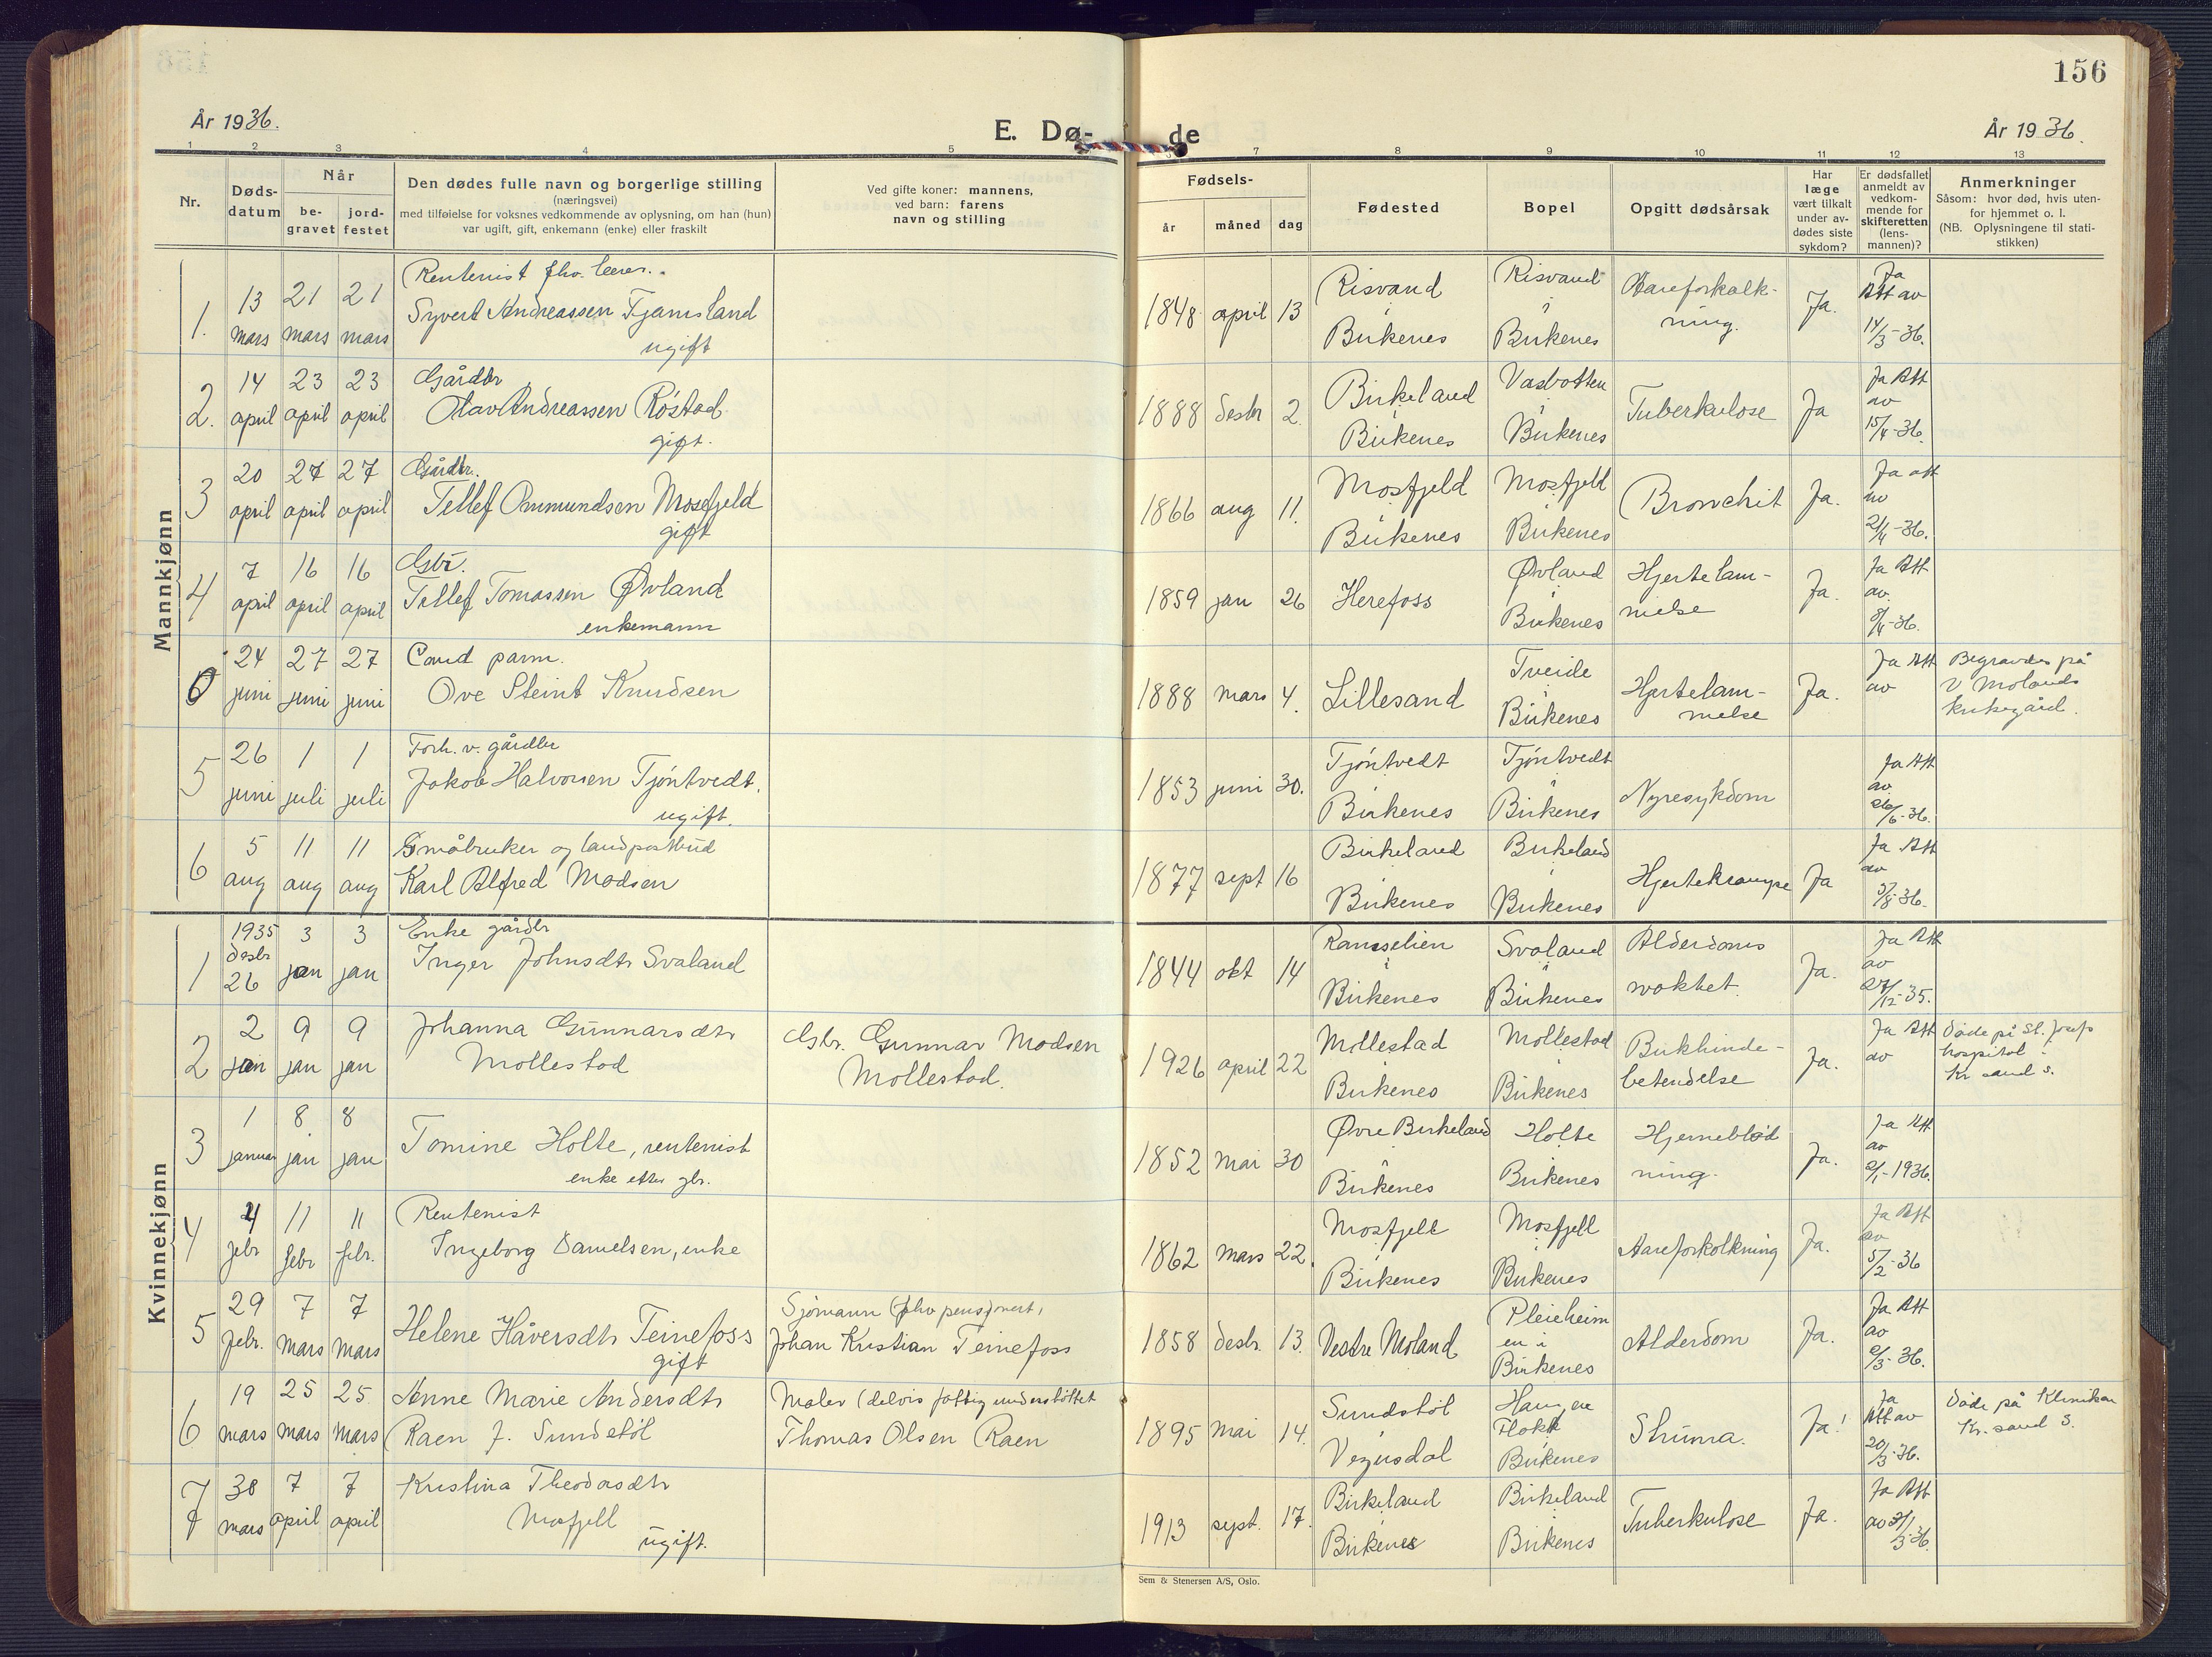 156
År 1936.
E. Dø-
de
År 1936.
1 2 3 4 5 7 8 9 10 11 12 13
Nr.
Døds-
datum
Når
be-
gravet
jord-
festet
Den dødes fulle navn og borgerlige stilling
(næringsvei)
med tilføielse for voksnes vedkommende av oplysning, om han (hun)
var ugift, gift, enkemann (enke) eller fraskilt
Ved gifte koner: mannens,
ved barn: farens
navn og stilling
Fødsels-
år måned dag
Fødested
Bopel
Opgitt dødsårsak
Har
læge
vært tilkalt
under av-
dødes siste
sykdom?
Er dødsfallet
anmeldt av
vedkom-
mende for
skifteretten
(lens-
mannen)?
Anmerkninger
Såsom: hvor død, hvis uten-
for hjemmet o. l.
(NB. Oplysningene til stati-
stikken)
Mannkjønn
1. 13 mars 21 mars 21 mars
Rentenist fhv. lærer.
Syvert Andreassen Tjamsland
ugift
1848 april 13 Risvand i Birkenes Risvand i Birkenes Aareforkalk-
ning. Ja. Ja Att av 14/3-36.
2. 14 april 23 april 23 april
Gårdbr
Olav Andreassen Røstad.
gift.
1888 desbr 2. Birkeland i Birkenes Vasbotten i Birkenes Tuberkulose Ja Ja Att av 15/4-36.
3 20 april 27 april 27 april
Gårdbr.
Tellef Ommundsen Mosfjeld
gift
1866 aug 11. Mosfjeld i Birkenes Mosfjeld i Birkenes Bronchit Ja. Ja att av 21/4-36.
4 7 april 16 april 16 april
Gbr.
Tellef Tomassen Øvland
enkemann
1859 jan 26 Herefoss Øvland i Birkenes Hjertelam-
melse Ja. Ja Att av. 8/4-36.
0 24 juni 27 juni 27 juni
Cand parm.
Ove Steint Knudsen
1888 mars 4. Lillesand Tveide i Birkenes Hjertelam-
melse Ja. Ja Att av Begravdes på
V Molands
kirkegård.
5 26 juni 1 juli 1 juli
Forh. v. gårdbr
Jakob Halvorsen Tjöntvedt.
ugift.
1853 juni 30. Tjöntvedt i Birkenes Tjöntvedt i Birkenes Nyresykdom Ja Att av 26/6-36.
6 5 aug 11 aug 11 aug
Småbruker og landpostbud
Karl Alfred Madsen
1877 sept 16 Birkeland i Birkenes Birkeland i Birkenes Hjertekrampe Ja Ja Att av 5/8-36.
Kvinnekjønn
1 1935 desbr 26 3 jan 3 jan
Enke gårdbr
Inger Johnsdtr Svaland
1844 okt 14 Ramselien i Birkenes Svaland i Birkenes Alderdoms
svakhet. Ja. Ja Att av 27/12-35.
2 2 jan 9 jan 9 jan
Johanna Gunnarsdtr
Mollestad
Gbr. Gunnar Madsen
Mollestad.
1926 april 22 Mollestad i Birkenes Mollestad i Birkenes Bukhinde-
betendelse Ja. Ja Att av Döde på St. Josefs
hospital i
Kr sand S.
3 1 januar 8 jan 8 jan
Tomine Holte, rentenist
enke etter gbr.
1852 mai 30 Øvre Birkeland i Birkenes Holte i Birkenes Hjerneblød
ning. Ja. Ja Att av 2/1-1936.
4 4 febr 11 febr 11 febr.
Rentenist
Ingeborg Danielsen, enke
1862 mars 22. Mosfjell i Birkenes Mosfjell i Birkenes Aareforkalkning Ja. Ja Att av 5/2-36
5 29 febr. 7 mars 7 mars
Helene Håversdtr Teinefoss
gift
Sjömann (fhv pensjonert,
Johan Kristian Teinefoss
1858 desbr. 13. Vestre Moland Pleieheim
en i
Birkenes Alderdom Ja. Ja Att av 2/3-36.
6 19 mars 25 mars 25 mars
Anne Marie Andersdtr
Raen f. Sundstøl
Maler (delvis fattigunderstøttet
Thomas Olsen Raen
1895 mai 14. Sundstöl i Vegusdal Flakk Birkenes Struma. Ja! Ja Att av 20/3-36. Döde på Kliniken
Kr. sand S.
7 30 mars 7 april 7 april
Kristina Theodorsdtr
Mosfjell
ugift.
1913 sept. 17. Birkeland i Birkenes Birkeland i Birkenes Tuberkulose Ja. Ja Att av 31/3-36.
Sem & Stenersen A/S, Oslo.